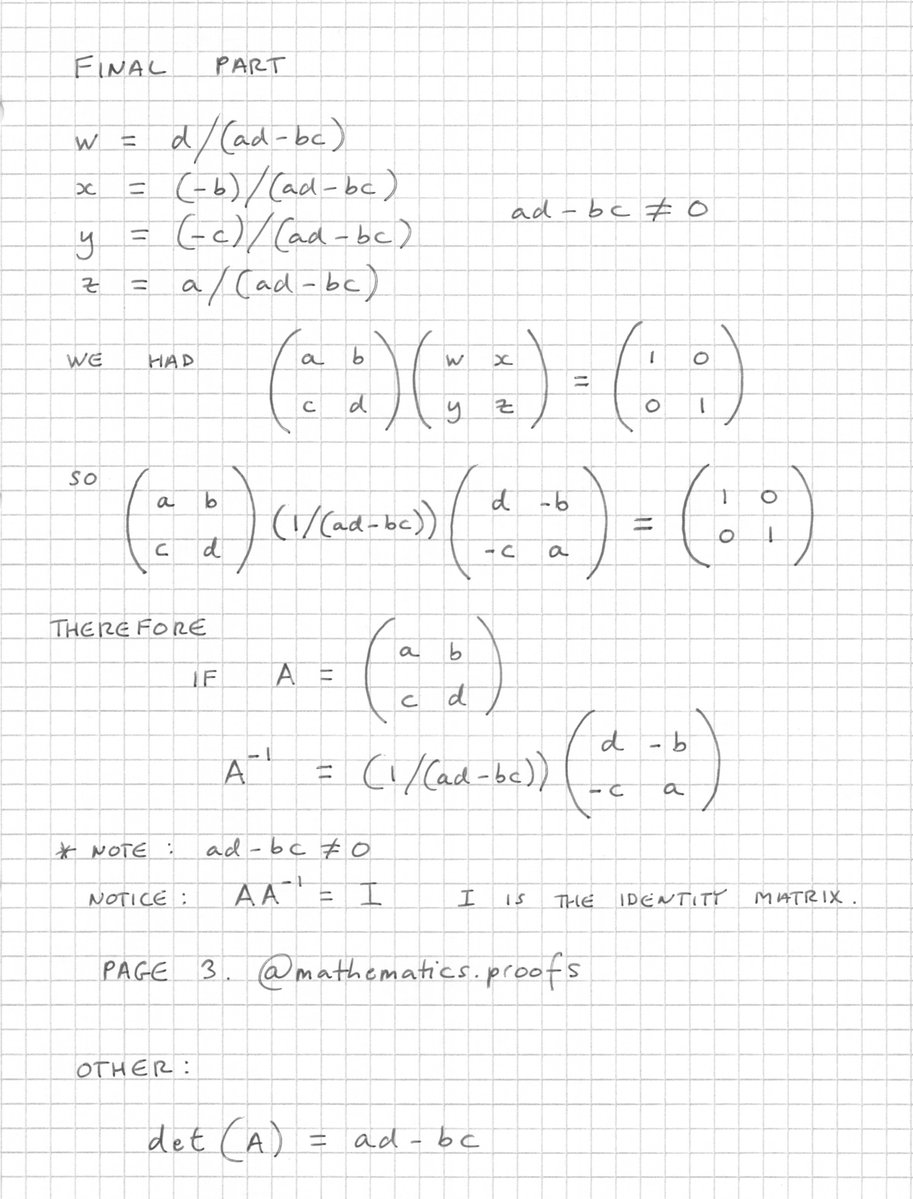 FINAL PART
w = d/(ad-bc)
x = (-b)/(ad-bc)
y = (-c)/(ad-bc)
z = a/(ad-bc)
ad-bc ≠ 0
WE HAD (a b; c d)(w x; y z) = (1 0; 0 1)
SO (a b; c d)(1/(ad-bc))(d -b; -c a) = (1 0; 0 1)
THEREFORE
IF A = (a b; c d)
A⁻¹ = (1/(ad-bc))(d -b; -c a)
* NOTE : ad-bc ≠ 0
NOTICE : AA⁻¹ = I I IS THE IDENTITY MATRIX.
PAGE 3. @mathematics.proofs
OTHER :
det(A) = ad-bc